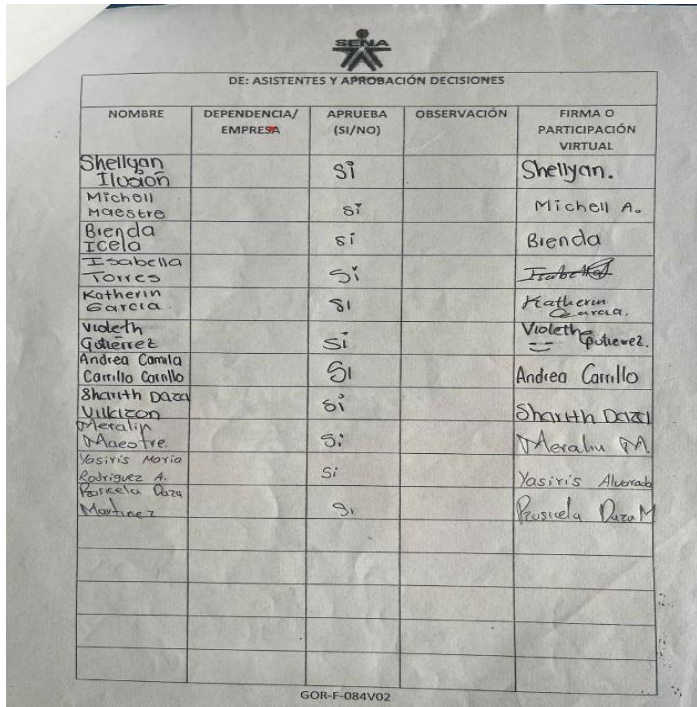 SENA
DE: ASISTENTES Y APROBACIÓN DECISIONES
NOMBRE DEPENDENCIA/ EMPRESA APRUEBA (SI/NO) OBSERVACIÓN FIRMA O PARTICIPACIÓN VIRTUAL
Shellyan
Ilucion Si Shellyan.
Michell
Maestre si Michell A.
Brenda
Icela si Brenda
Isabella
Torres Si Isabella
Katherin
Garcia SI Katherin
Garcia.
Violeth
Gutierrez Si Violeth
Gutierrez.
Andrea Camila
Carrillo Carrillo SI Andrea Carrillo
Sharith Daza
Villizon si Sharith Daza
Meralin
Maestre Si Meralin M
Yasiris Maria
Rodriguez A. Si Yasiris Alvarado
Rosicela Daza
Martinez Si Rosicela Daza M
GOR-F-084V02